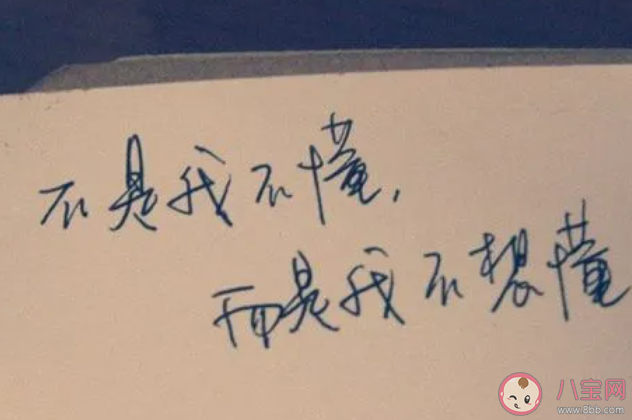 不是我不懂,
而是我不想懂
八宝网
www.8bb.com